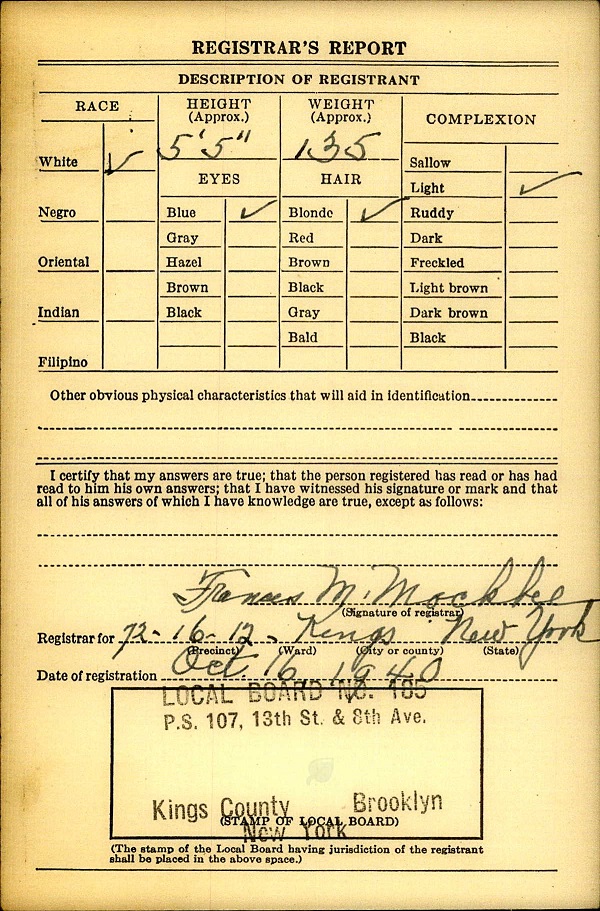 REGISTRAR'S REPORT
DESCRIPTION OF REGISTRANT
RACE
White ✓
Negro
Oriental
Indian
Filipino
HEIGHT
(Approx.)
5' 5"
EYES
Blue ✓
Gray
Hazel
Brown
Black
WEIGHT
(Approx.)
135
HAIR
Blonde ✓
Red
Brown
Black
Gray
Bald
COMPLEXION
Sallow
Light ✓
Ruddy
Dark
Freckled
Light brown
Dark brown
Black
Other obvious physical characteristics that will aid in identification
I certify that my answers are true; that the person registered has read or has had
read to him his own answers; that I have witnessed his signature or mark and that
all of his answers of which I have knowledge are true, except as follows:
Frances M. Mockbee
(Signature of registrar)
Registrar for 72-16-12- Kings New York
(Precinct) (Ward) (City or county) (State)
Date of registration Oct. 16, 1940
LOCAL BOARD NO. 185
P.S. 107, 13th St. & 8th Ave.
Kings County Brooklyn
(STAMP OF LOCAL BOARD)
New York
(The stamp of the Local Board having jurisdiction of the registrant
shall be placed in the above space.)